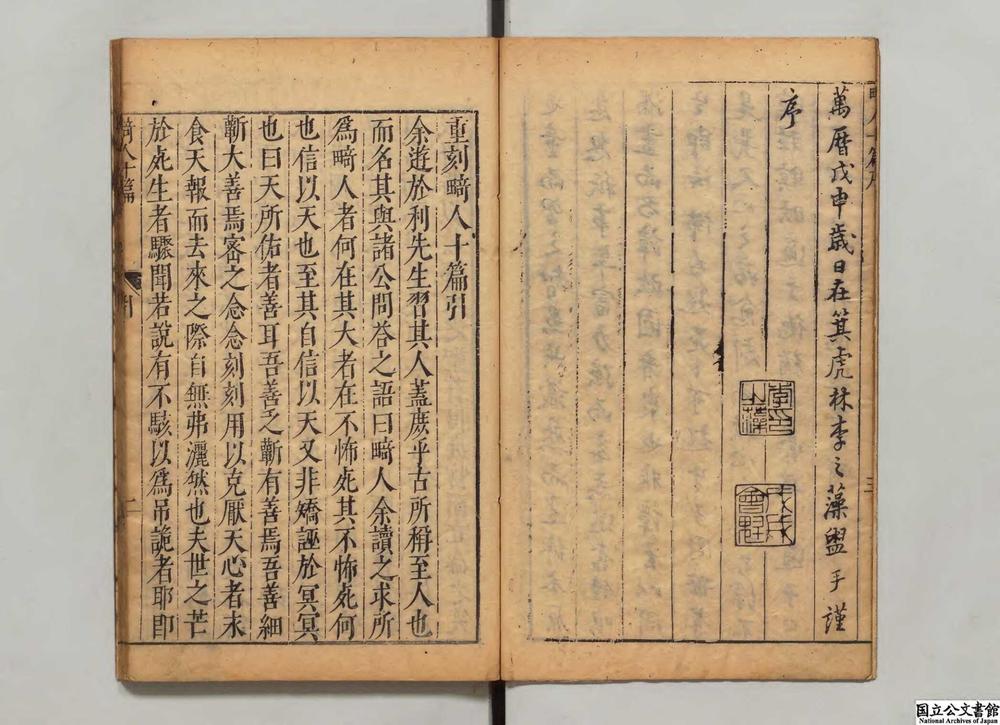 萬曆戊申歲日在箕虎林李之藻盥手謹
序
李之藻印
戊戌會魁
重刻畸人十篇引
余遊於利先生習其人蓋庶乎古所稱至人也
而名其與諸公問荅之語曰畸人余讀之求所
爲畸人者何在其大者在不怖死其不怖死何
也信以天也至其自信以天又非矯誣於冥冥
也曰天所佑者善耳吾善之蘄有善焉吾善細
蘄大善焉密之念念刻刻用以克厭天心者未
食天報而去來之際自無弗灑然也夫世之芒
於死生者驟聞若說有不駭以爲吊詭者耶卽
畸人十篇
引
二
国立公文書館
National Archives of Japan